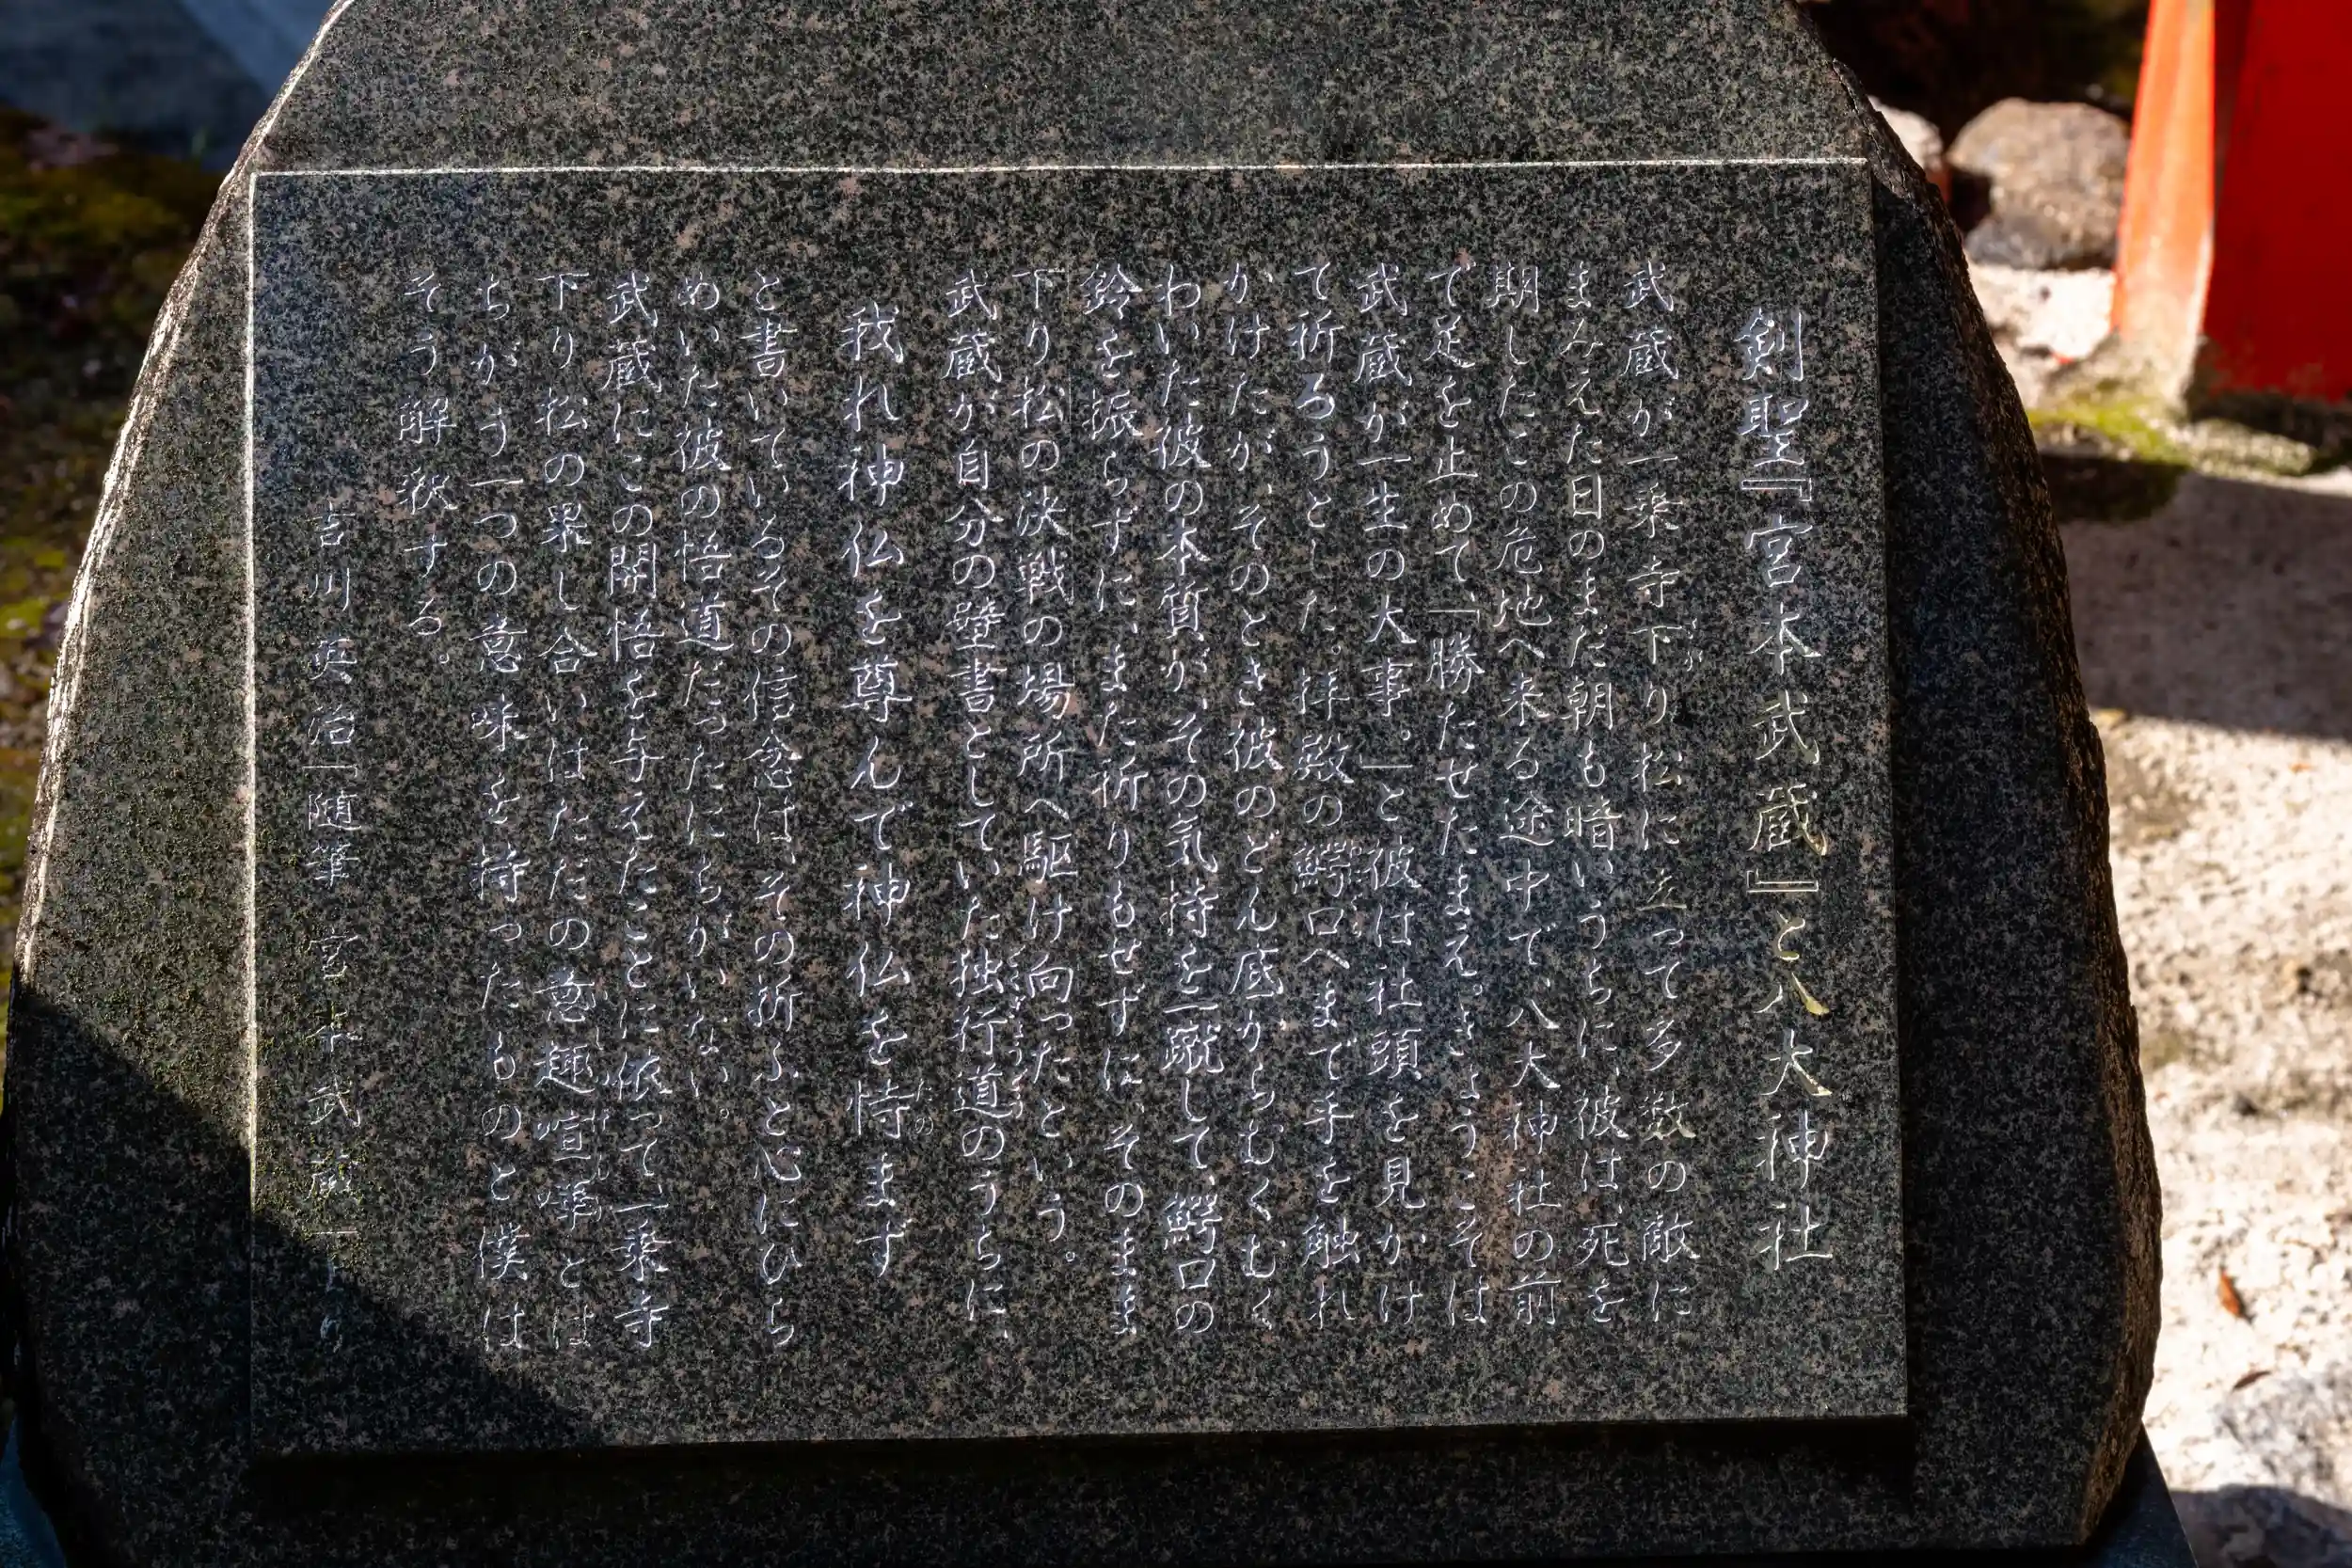 剣聖『宮本武蔵』と八大神社
武蔵が一乗寺下り松に立って多数の敵に
まみえた日のまだ朝も暗いうちに、彼は、死を
期したこの危地へ来る途中で、八大神社の前
で足を止めて、「勝たせたまえ。きょうこそは
武蔵が一生の大事。」と彼は社頭を見かけ
て祈ろうとした。拝殿の鰐口へまで手を触れ
かけたが、そのとき彼のどん底からむくむく
わいた彼の本質が、その気持を一蹴して、鰐口の
鈴を振らずに、また祈りもせずに、そのまま
下り松の決戦の場所へ駆け向ったという。
武蔵が自分の壁書としていた独行道のうちに、
我れ神仏を尊んで神仏を恃まず
と書いているその信念は、その折ふと心にひら
めいた彼の悟道だったにちがいない。
武蔵にこの開悟を与えたことに依って、一乗寺
下り松の果し合いはただの意趣喧嘩とは
ちがう一つの意味を持ったものと僕は
そう解釈する。
吉川英治「随筆 宮本武蔵」より